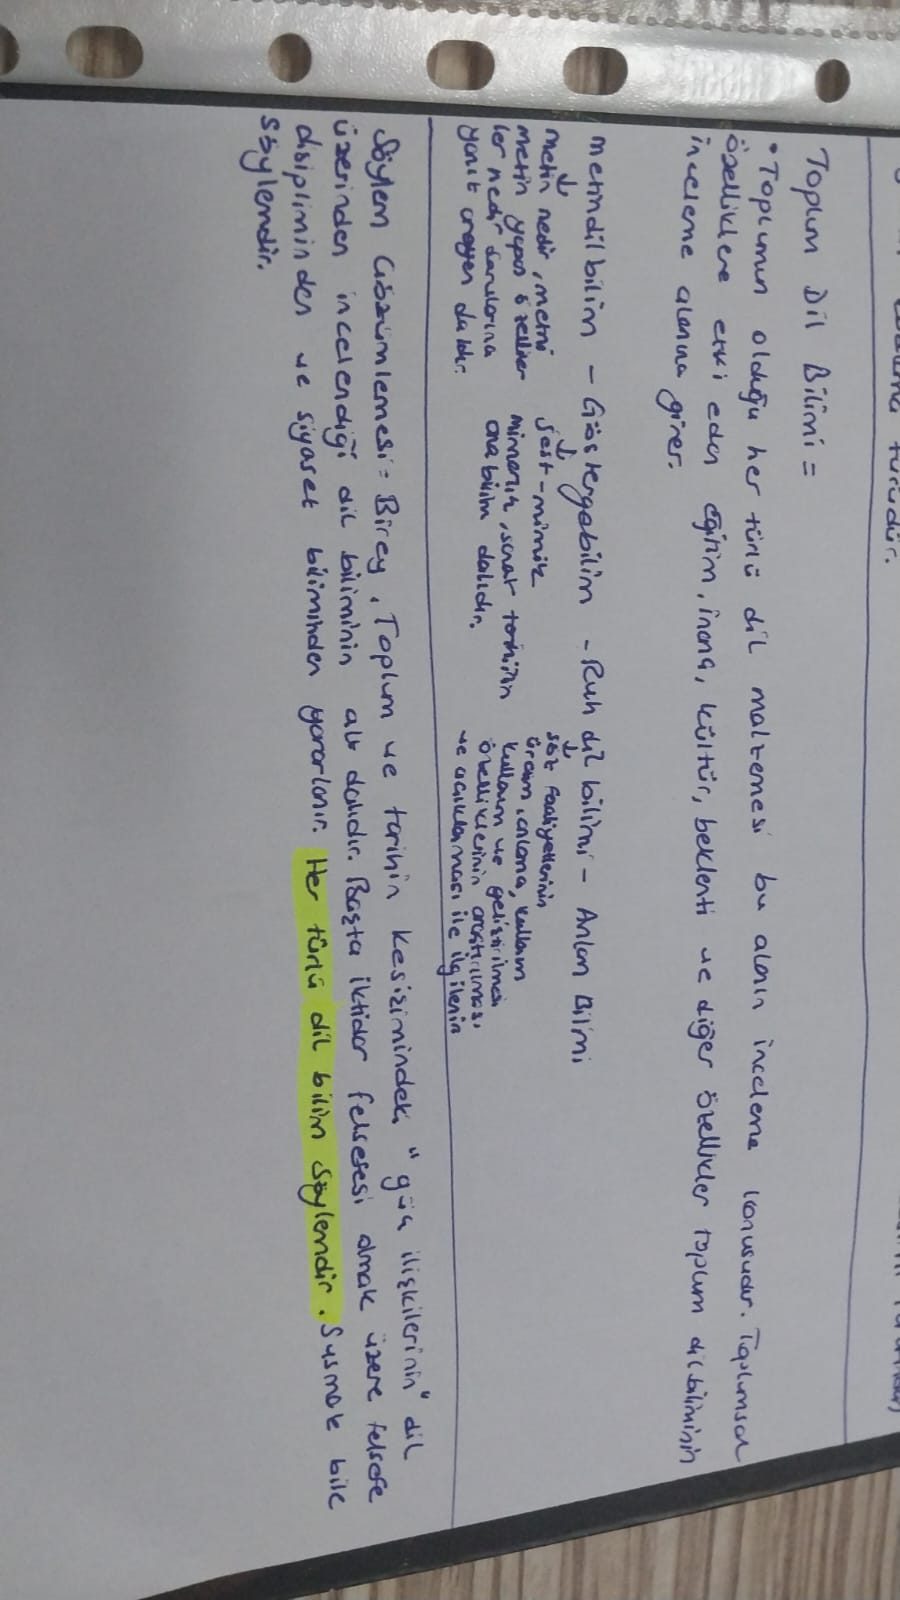 türüdür.
Toplum Dil Bilimi =
• Toplumun olduğu her türlü dil malzemesi bu alanın inceleme konusudur. Toplumsal
özelliklere etki eden eğitim, inanç, kültür, beklenti ve diğer özellikler toplum dilbiliminin
inceleme alanına girer.
metindilbilim - Göstergebilim - Ruh dil bilimi - Anlam Bilimi
metin nedir, metni
metin yapan özellik
ler nedir sorularına
yanıt arayan daldır.
Jest-mimik
mimarlık, sanat tarihinin
ana bilim dalıdır.
söz faaliyetlerinin
üretim, anlama, kullanım
kullanım ve geliştirilmesi
özelliklerinin araştırılması
ve açıklanması ile ilgilenir
Söylem Çözümlemesi = Birey, Toplum ve tarihin kesişimindeki "güç ilişkilerinin" dil
üzerinden incelendiği dil biliminin alt dalıdır. Başta iktidar felsefesi olmak üzere felsefe
disiplininden ve siyaset biliminden yararlanır. Her türlü dil bilim söylemdir. Susmak bile
söylemdir.